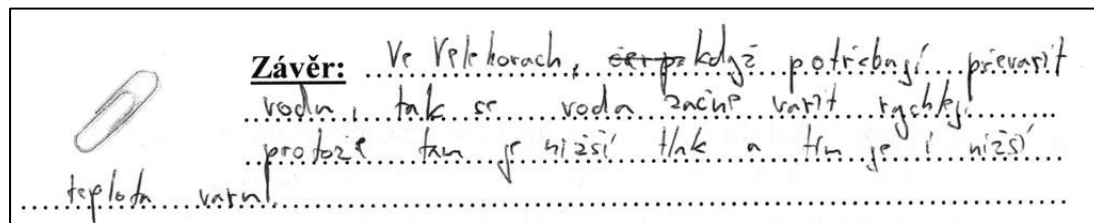 Závěr: Ve Velehorach, když potřebují převařit
vodu, tak se voda začne vařit rychleji
protože tam je nižší tlak a tím je i nižší
teplota varu.